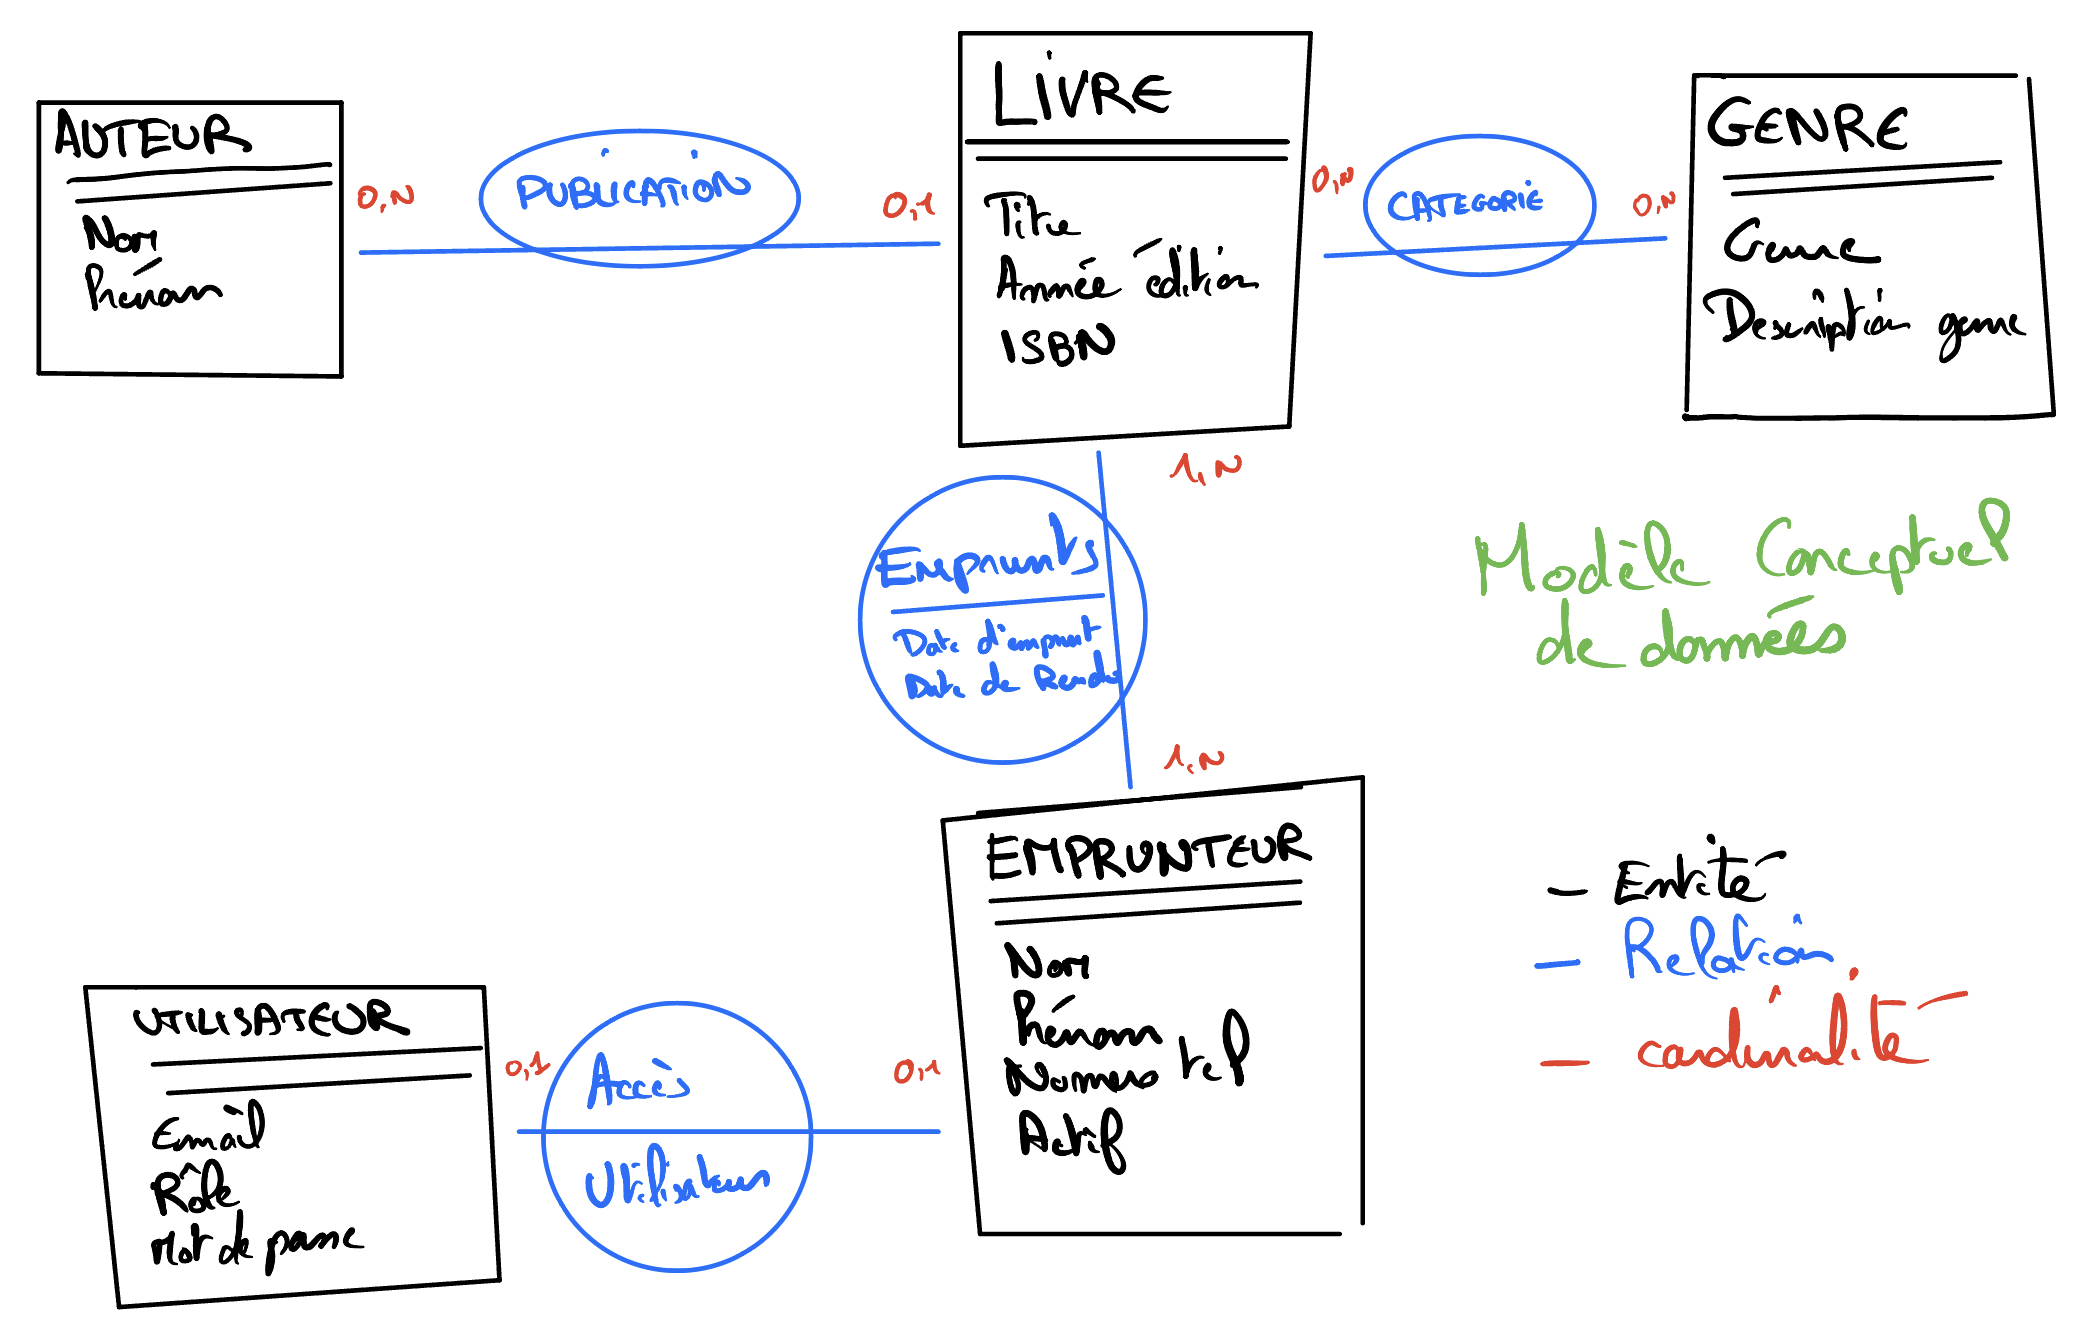 AUTEUR
Nom
Prénom
0,N
PUBLICATION
0,1
LIVRE
Titre
Année édition
ISBN
0,N
CATEGORIE
0,N
GENRE
Genre
Description genre
1,N
Emprunts
Date d'emprunt
Date de Rendu
1,N
Modèle Conceptuel
de données
EMPRUNTEUR
Nom
Prénom
Numero tel
Actif
UTILISATEUR
Email
Rôle
Mot de passe
0,1
Accès
Utilisateur
0,1
- Entité
- Relation
- cardinalité